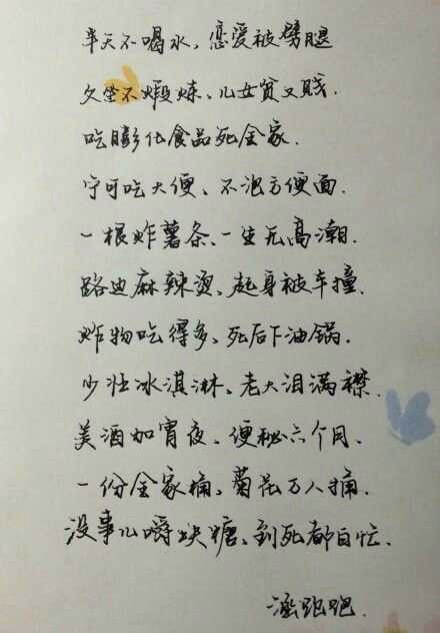 半天不喝水,恋爱被劈腿
久坐不煅炼、儿女贫又贱.
吃膨化食品死全家.
宁可吃大便、不泡方便面.
一根炸薯条、一生无高潮.
路边麻辣烫、起身被车撞.
炸物吃得多、死后下油锅.
少壮冰淇淋、老大泪满襟.
美酒加宵夜、便秘六个月.
一份全家桶、菊花万人捅.
没事儿嚼块糖、到死都白忙.
跑跑.